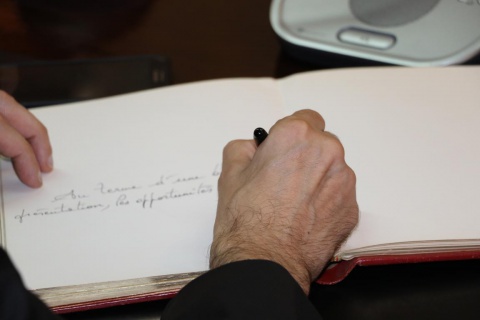 Au terme d'une
présentation, les opportunités